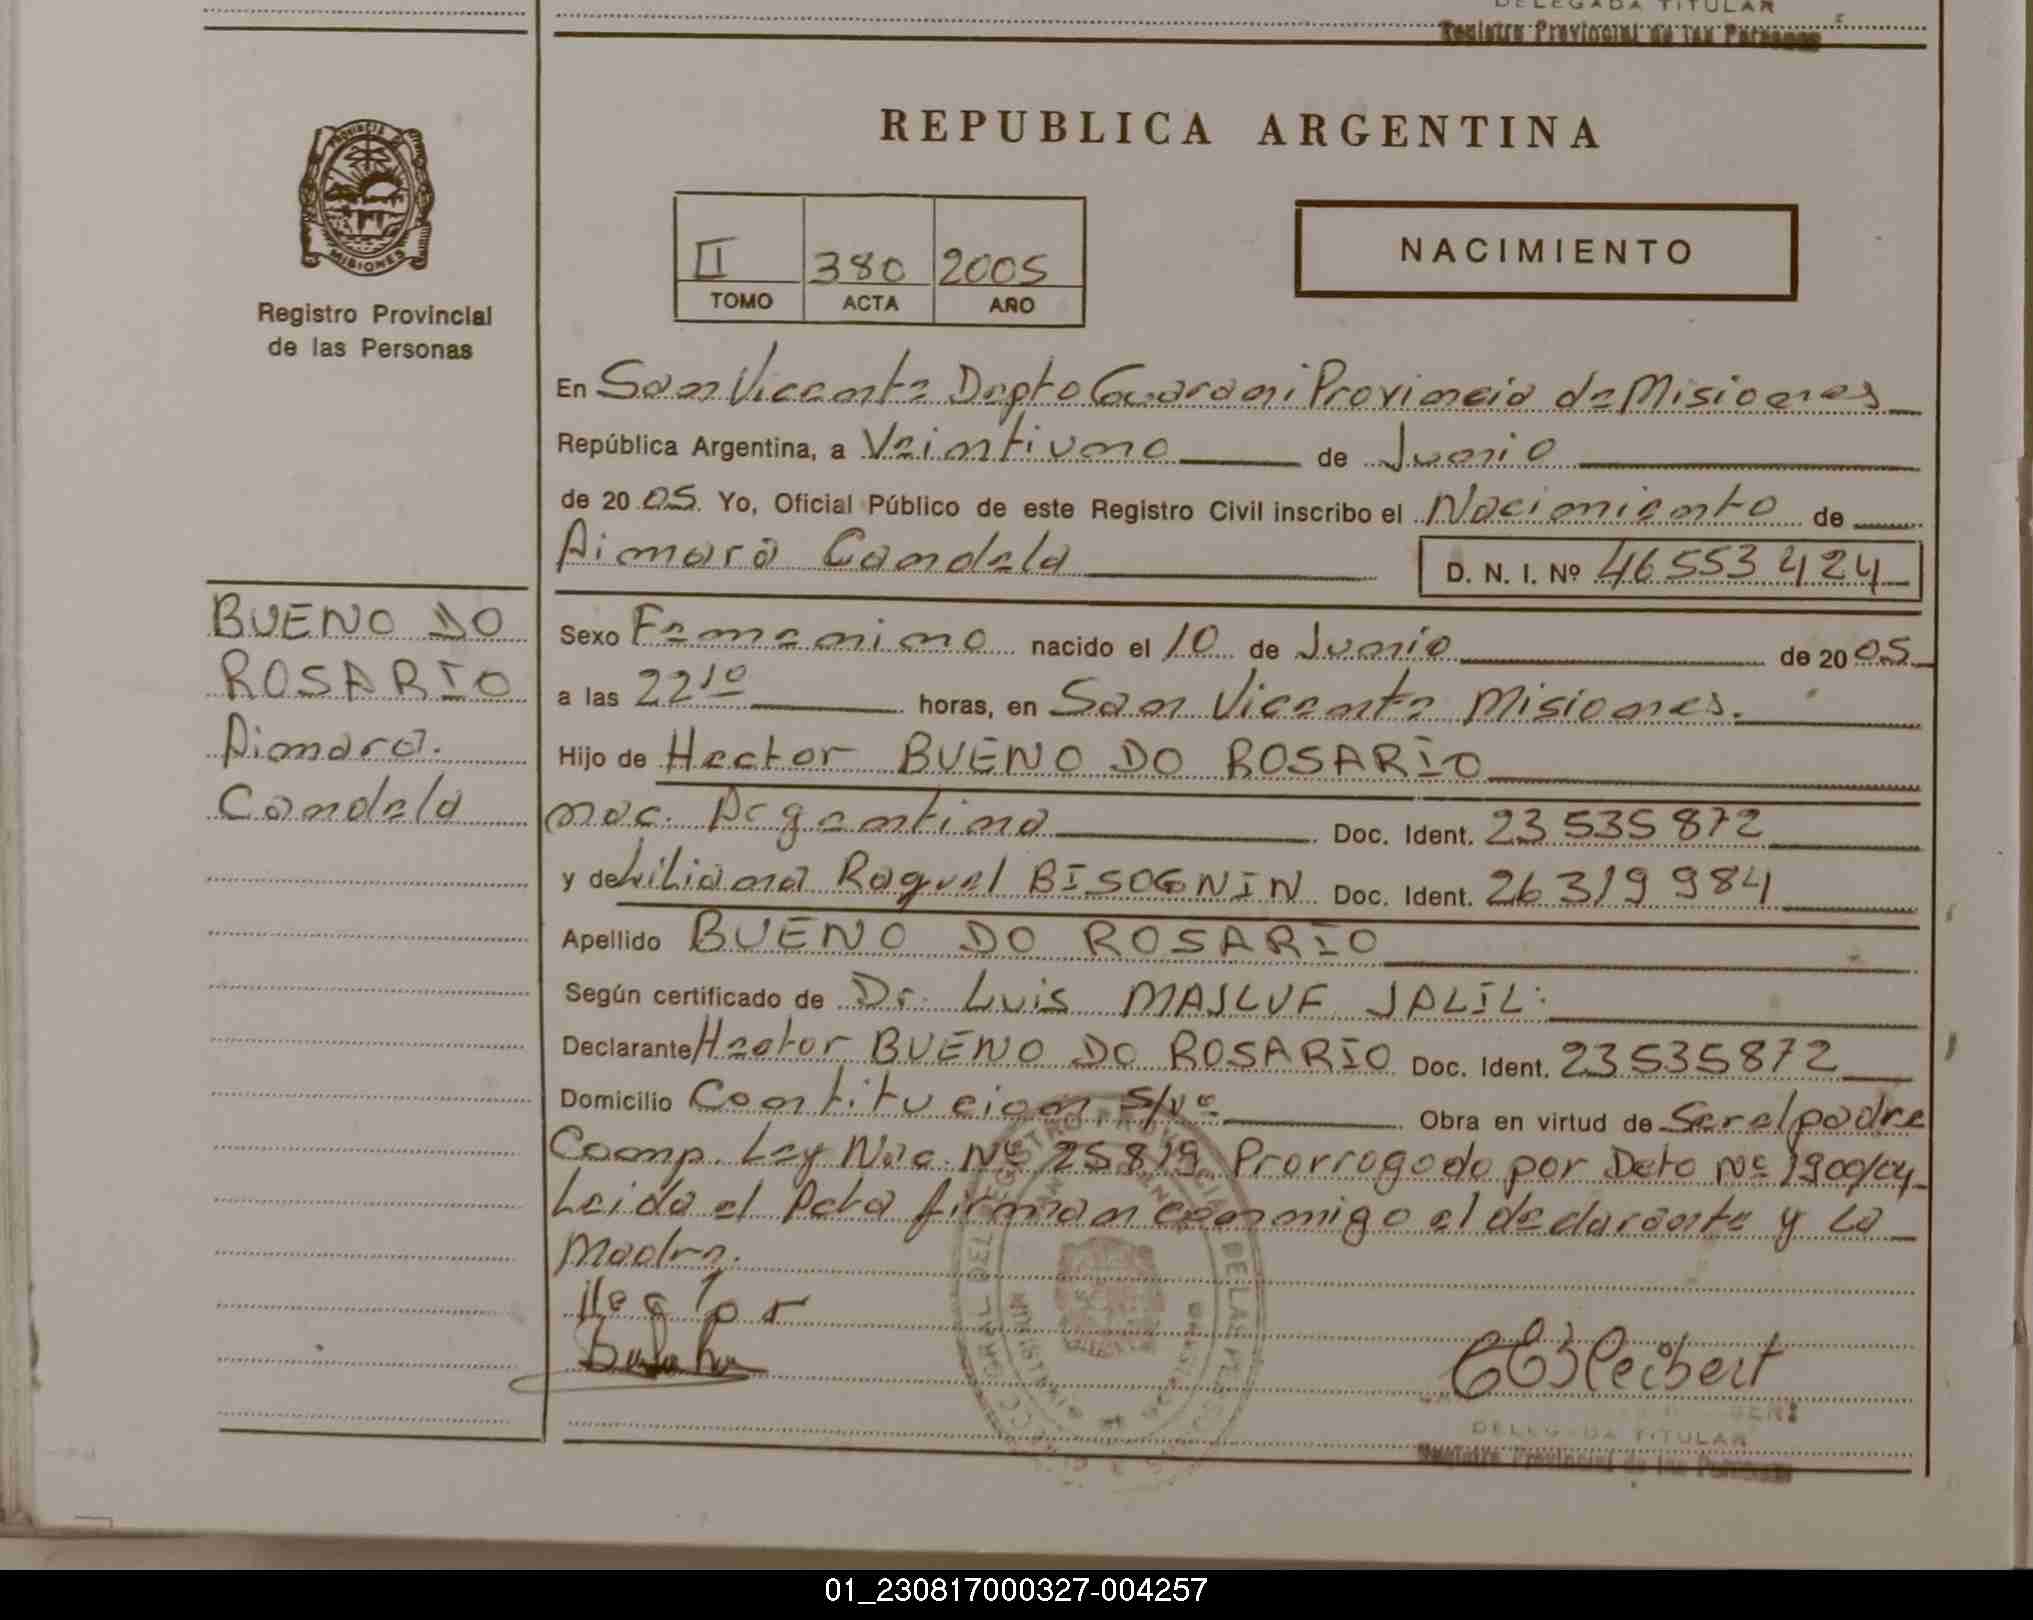 DELEGADA TITULAR
Registro Provincial de las Personas
PROVINCIA DE
MISIONES
Registro Provincial
de las Personas
REPUBLICA ARGENTINA
II 380 2005
TOMO ACTA AÑO
NACIMIENTO
En San Vicente Depto Guarani Provincia de Misiones
República Argentina, a Veintiuno de Junio
de 2005. Yo, Oficial Público de este Registro Civil inscribo el Nacimiento de
Aimara Candela D. N. I. Nº 46553424
BUENO DO
ROSARIO
Aimara.
Candela
Sexo Femenino nacido el 10 de Junio de 2005
a las 22 10 horas, en San Vicente Misiones.
Hijo de Hector BUENO DO ROSARIO
nac. Argentina Doc. Ident. 23535872
y de Liliana Raquel BISOGNIN Doc. Ident. 26319984
Apellido BUENO DO ROSARIO
Según certificado de Dr. Luis MASLUF JALIL
Declarante Hector BUENO DO ROSARIO Doc. Ident. 23535872
Domicilio Contitucion S/Nº Obra en virtud de Ser el padre
Comp. Ley Nac. Nº 25819 Prorrogado por Dcto Nº 1900/04
Leida el Acta firman conmigo el declarante y la
Madre.
DELEGADA TITULAR
Registro Provincial de las Personas
01_230817000327-004257